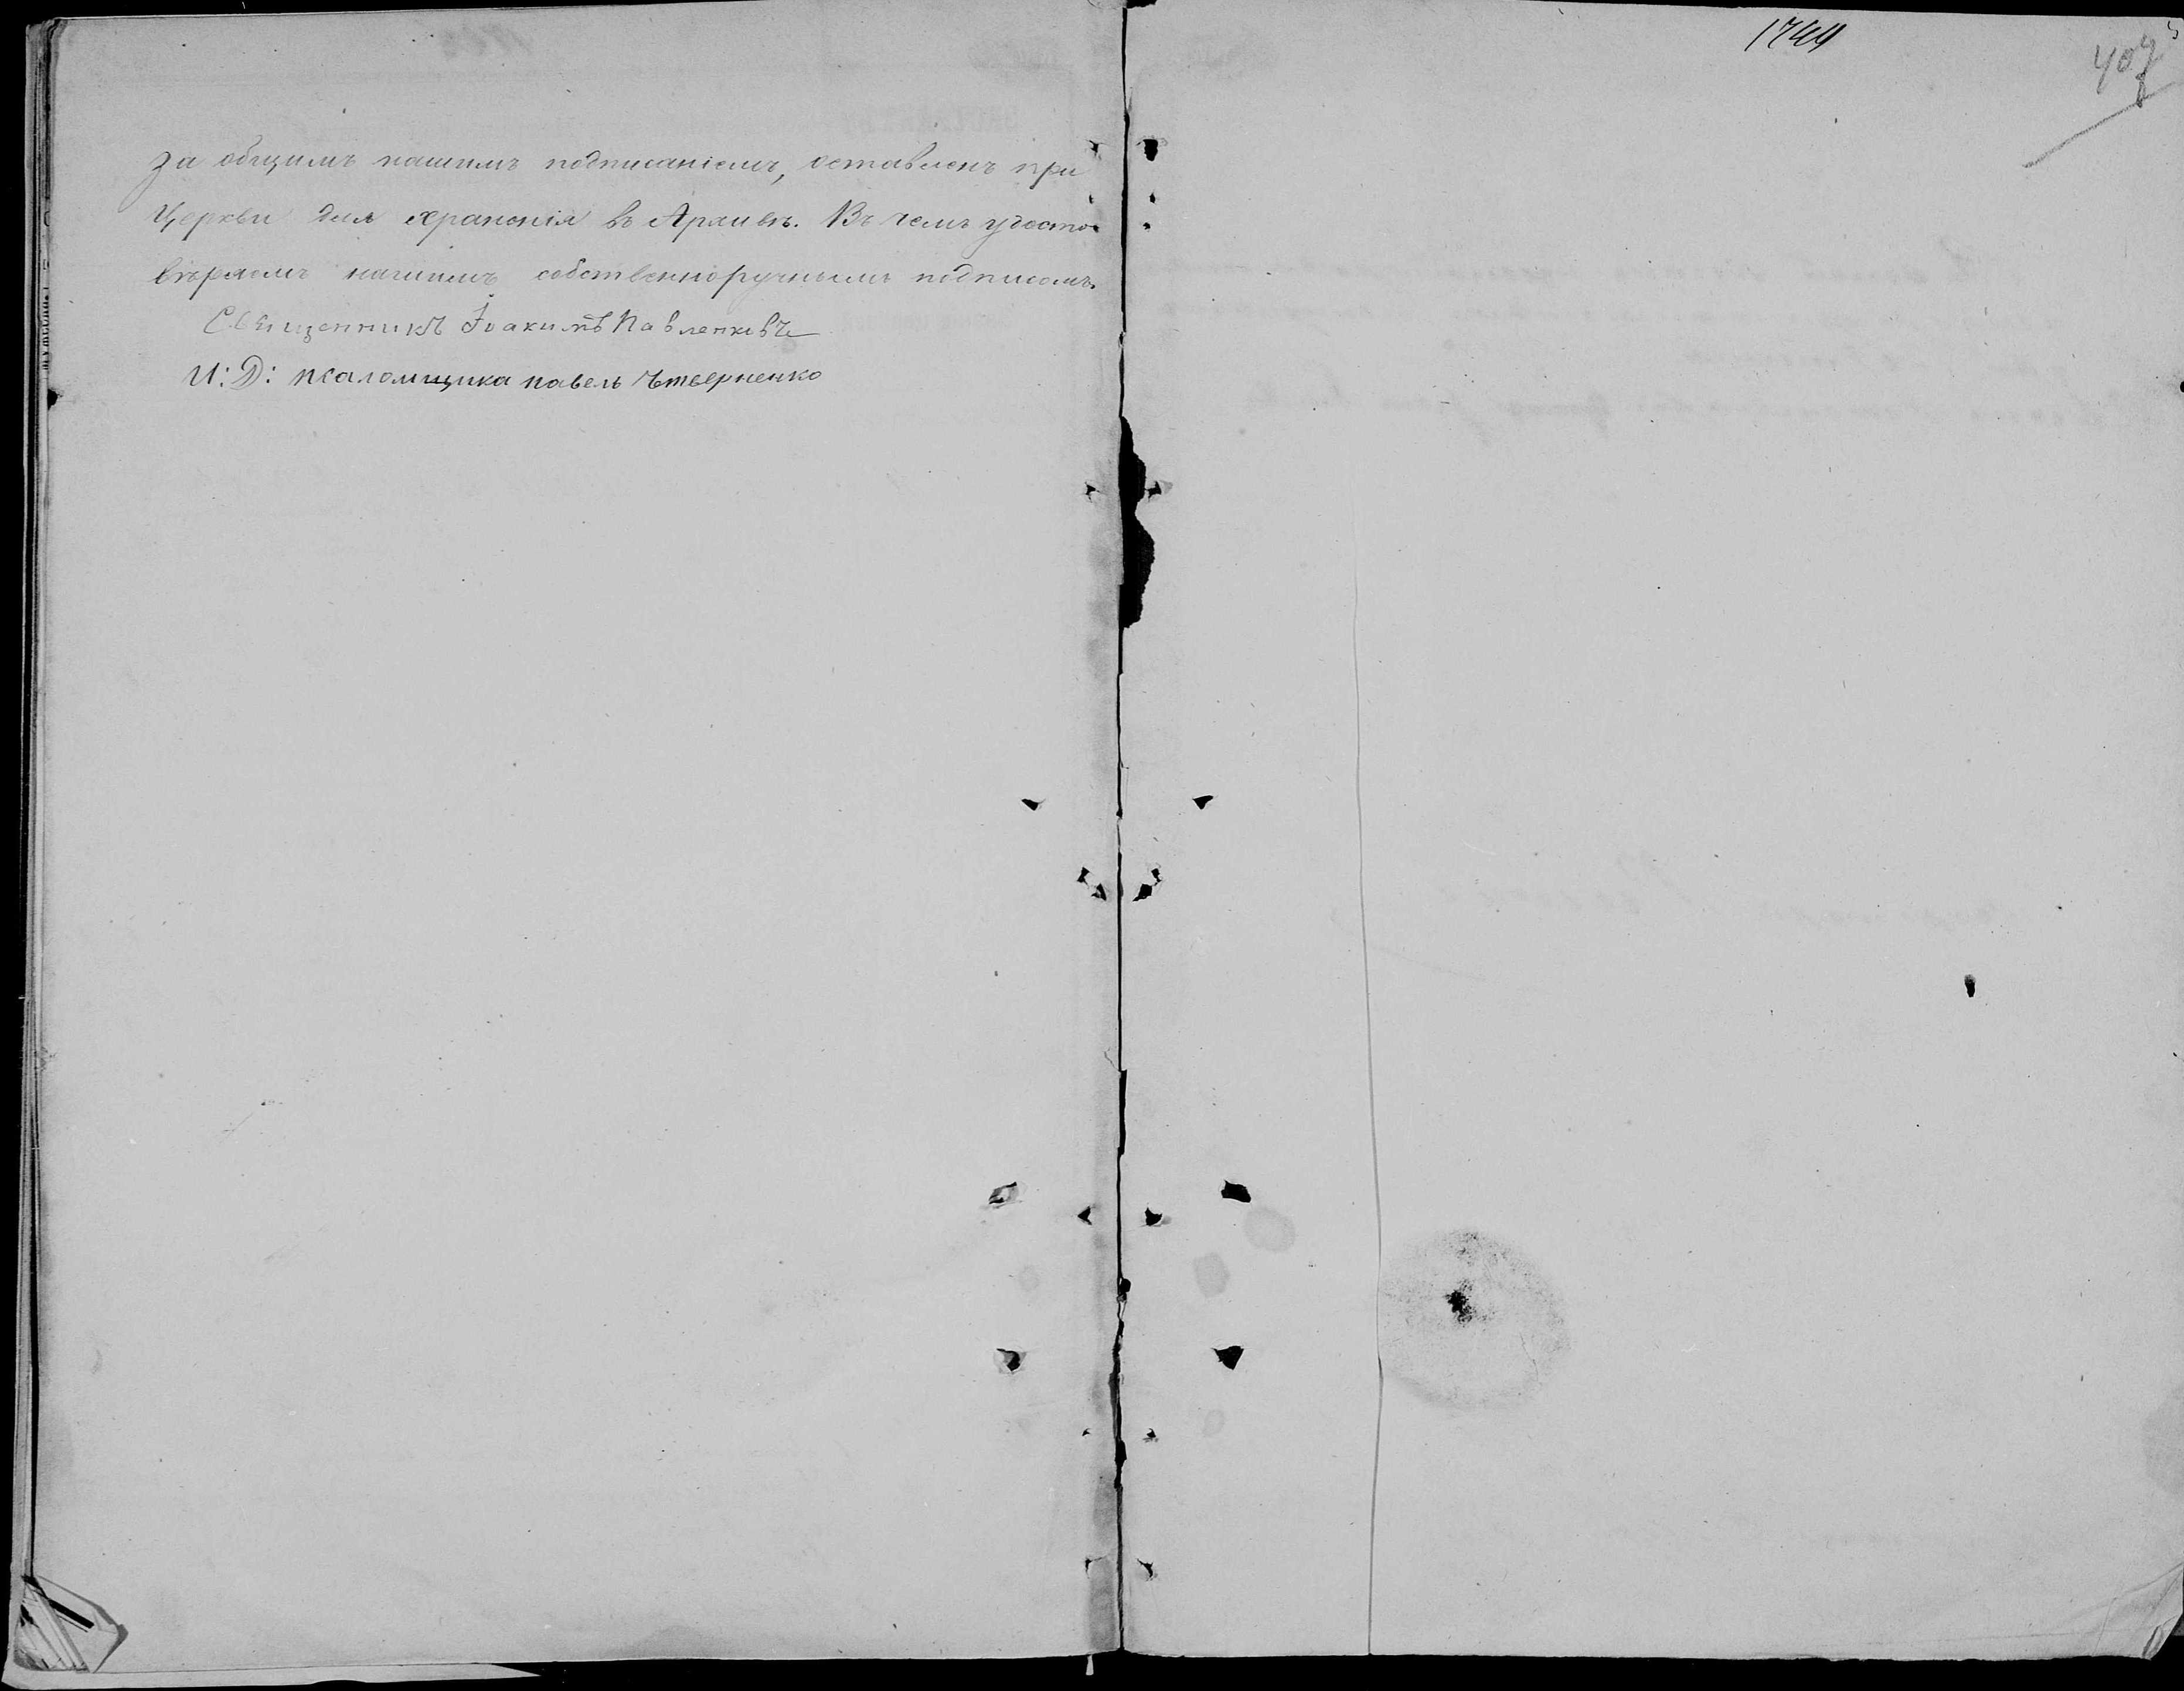 За общимъ нашимъ подписаніемъ, оставленъ при
Церкви для храненія въ Архивѣ. Въ чемъ удосто-
вѣряемъ нашимъ собственноручнымъ подписомъ.
Священникъ Іоакимъ Павленковъ
И: Д: псаломщика павелъ Четверненко
1744
407